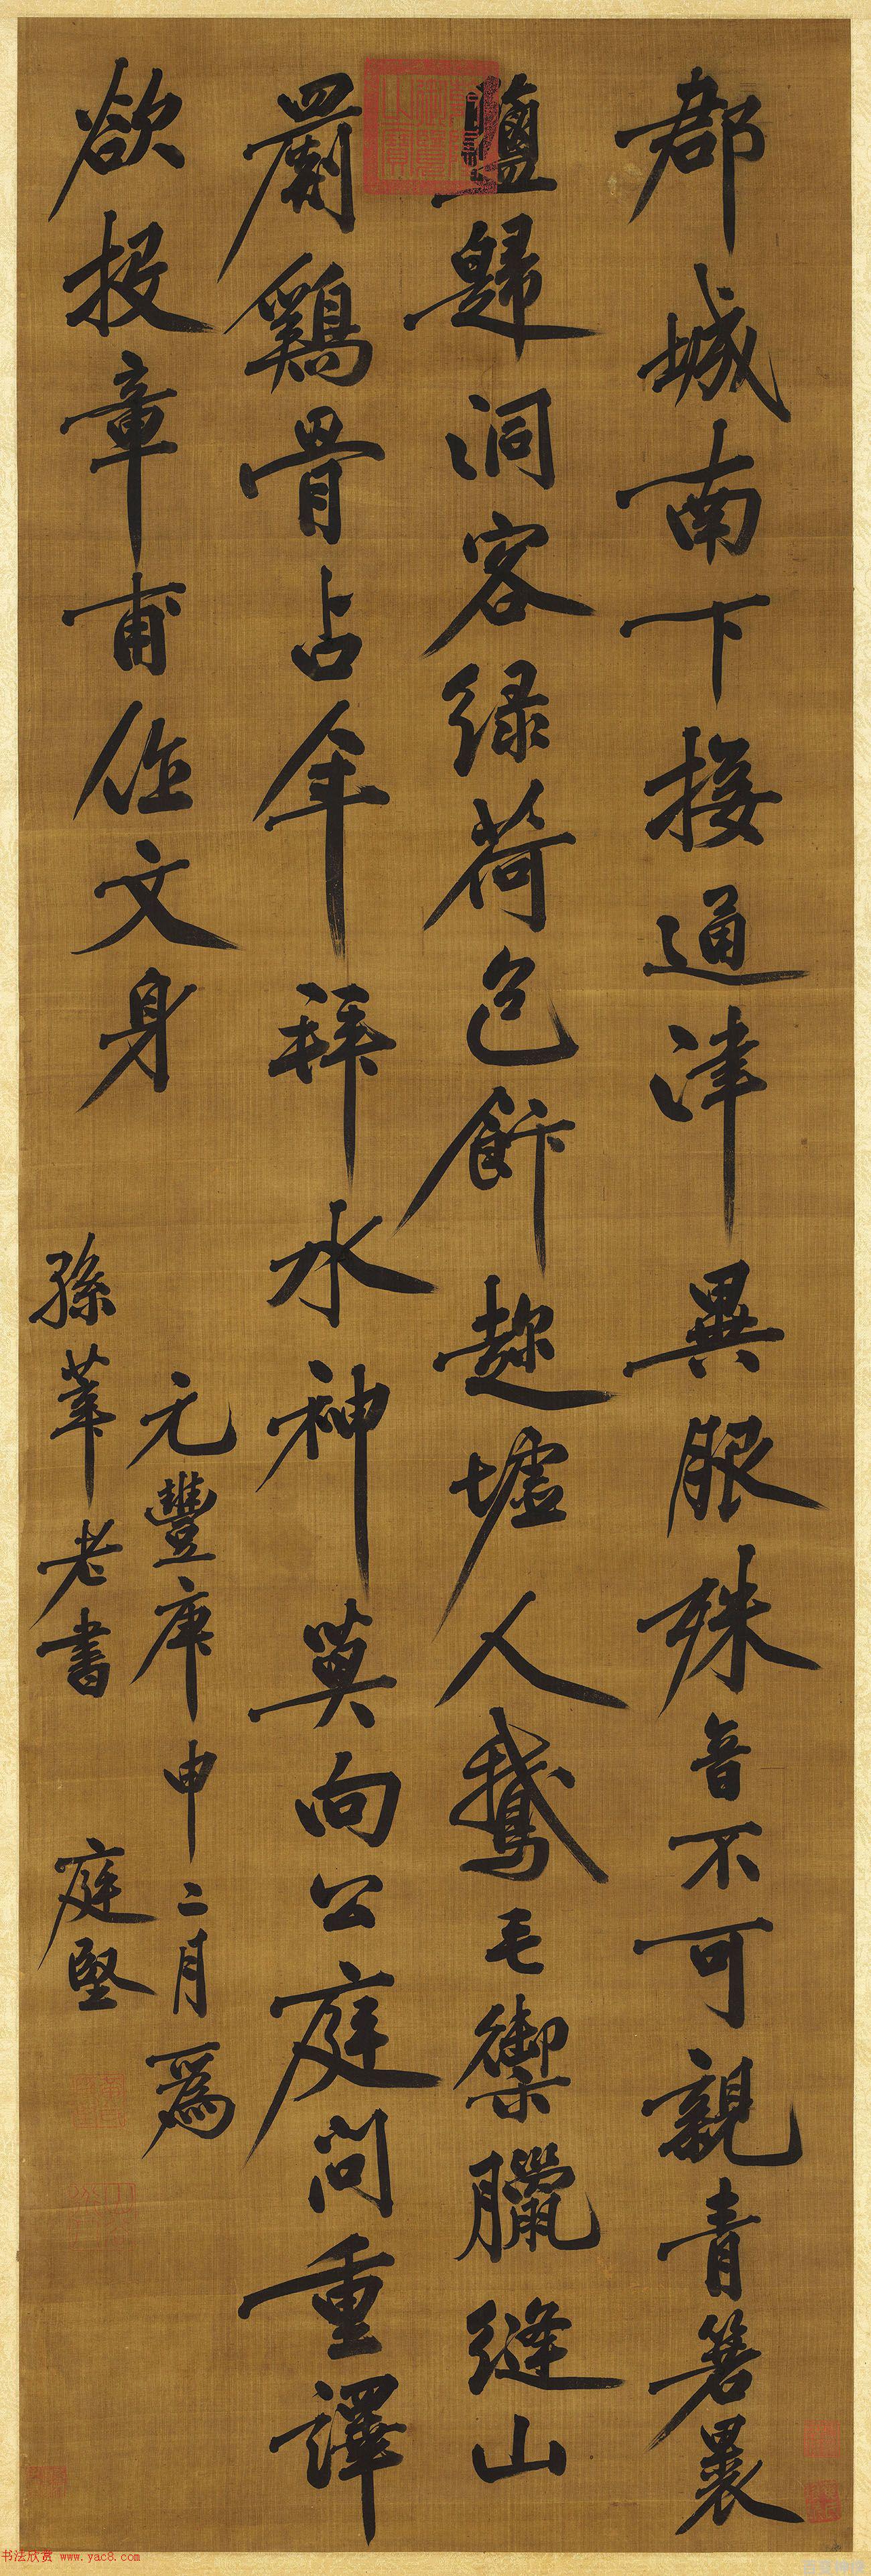 郡城南下接通津異服殊音不可親青箬裹
鹽歸洞客緑荷包飰趂墟人鵝毛禦臘縫山
罽鷄骨占年拜水神莫向公庭問重譯
欲投章甫作文身
元豐庚申二月爲
孫莘老書 庭堅
书法欣赏 www.yac8.com